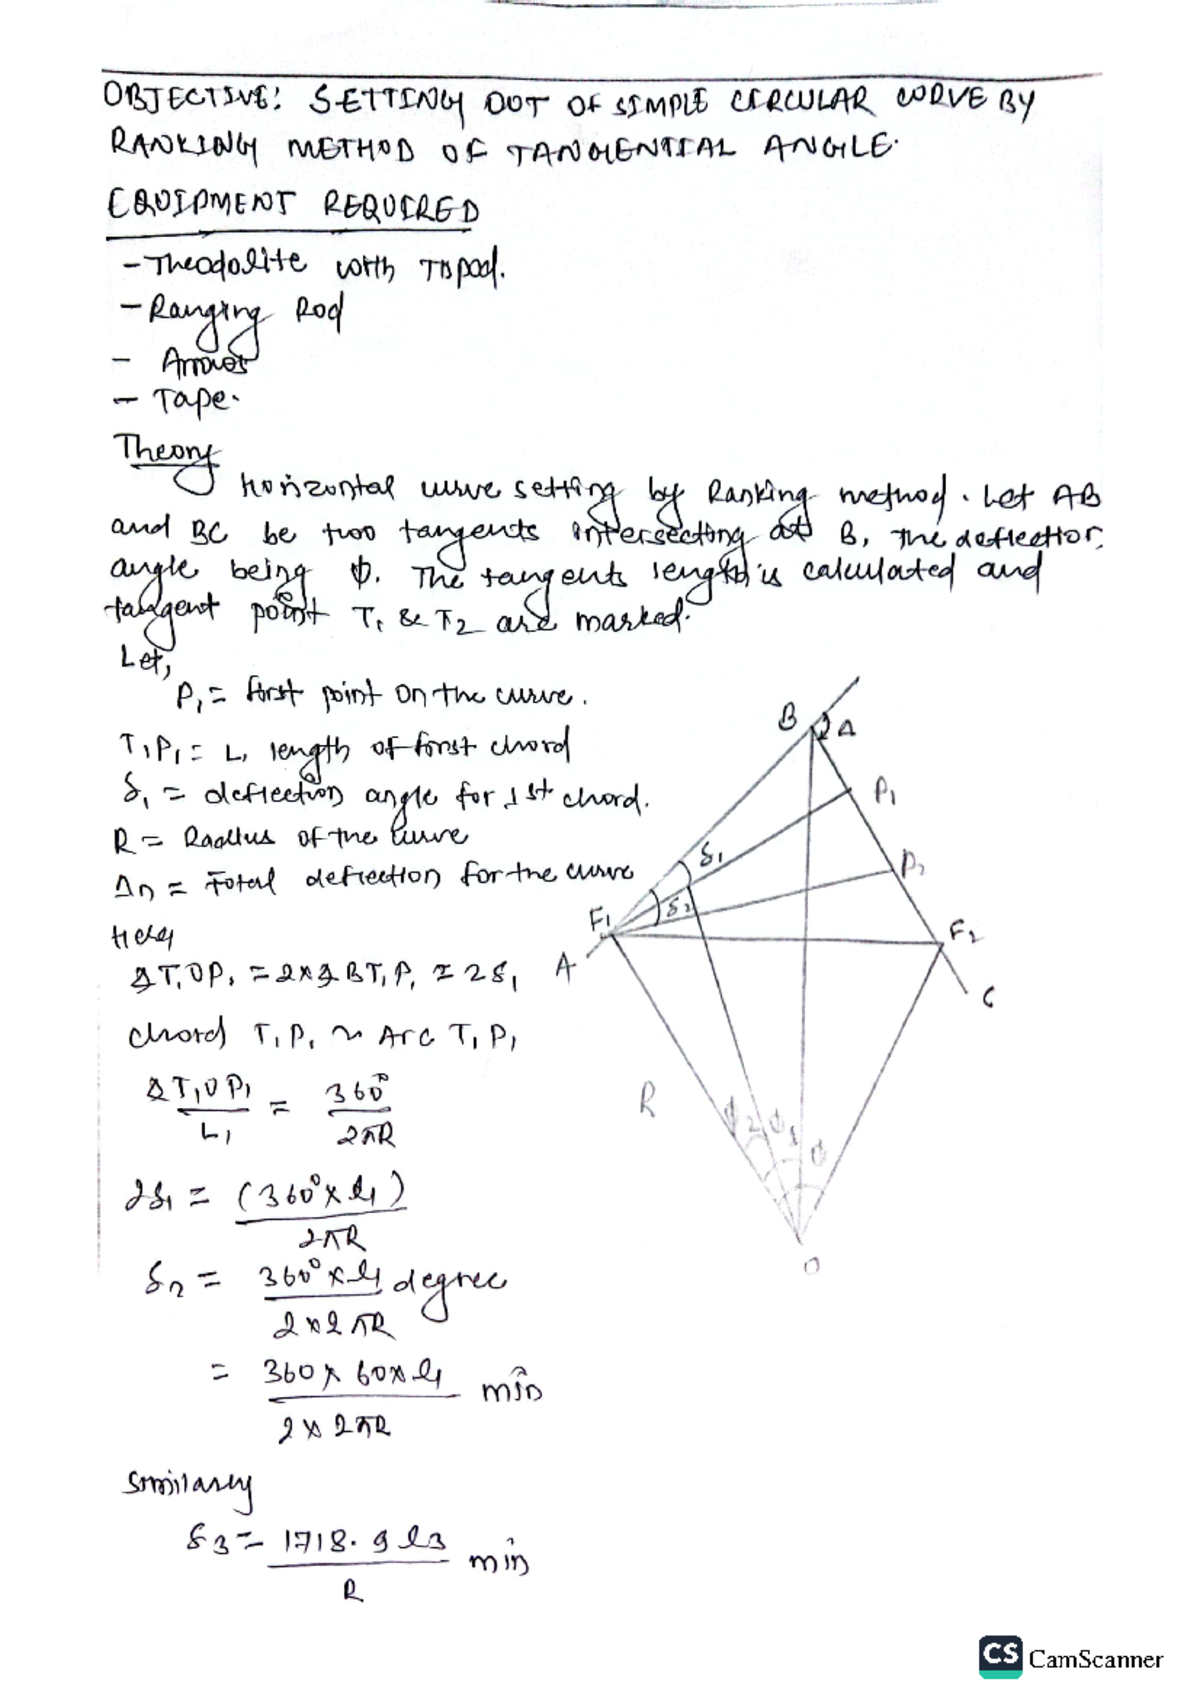 OBJECTIVE: SETTING OUT OF SIMPLE CIRCULAR CURVE BY
RANKING METHOD OF TANGENTIAL ANGLE.
EQUIPMENT REQUIRED
- Theodolite with Tripod.
- Ranging Rod
- Arrows
- Tape.
Theory
Horizontal curve setting by Ranking method. Let AB
and BC be two tangents intersecting at B, The deflection
angle being φ. The tangents length is calculated and
tangent point T1 & T2 are marked.
Let,
P1 = first point on the curve.
T1P1 = L1 length of first chord
δ1 = deflection angle for 1st chord.
R = Radius of the curve
Δn = Total deflection for the curve
Here
∠T1OP1 = 2×∠BT1P1 = 2δ1
chord T1P1 ~ Arc T1P1
∠T1OP1 / L1 = 360° / 2πR
2δ1 = (360° × l1) / 2πR
δ2 = 360° × l1 / 2×2πR degree
= 360 × 60 × l1 / 2 × 2πR min
Similarly
δ3 = 1718.9 l3 / R min
B Δ
P1
δ1
P2
δ2
F1
F2
A
C
R
φ2 φ1 φ
O
CS CamScanner